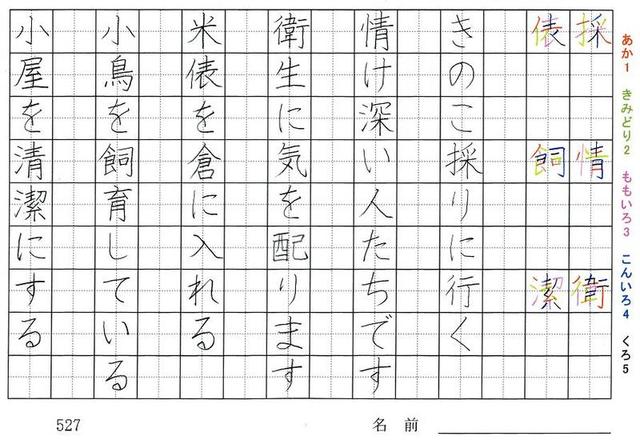 あか1 きみどり2 ももいろ3 こんいろ4 くろ5
採 情 衛
俵 飼 潔
きのこ採りに行く
情け深い人たちです
衛生に気を配ります
米俵を倉に入れる
小鳥を飼育している
小屋を清潔にする
527
名前